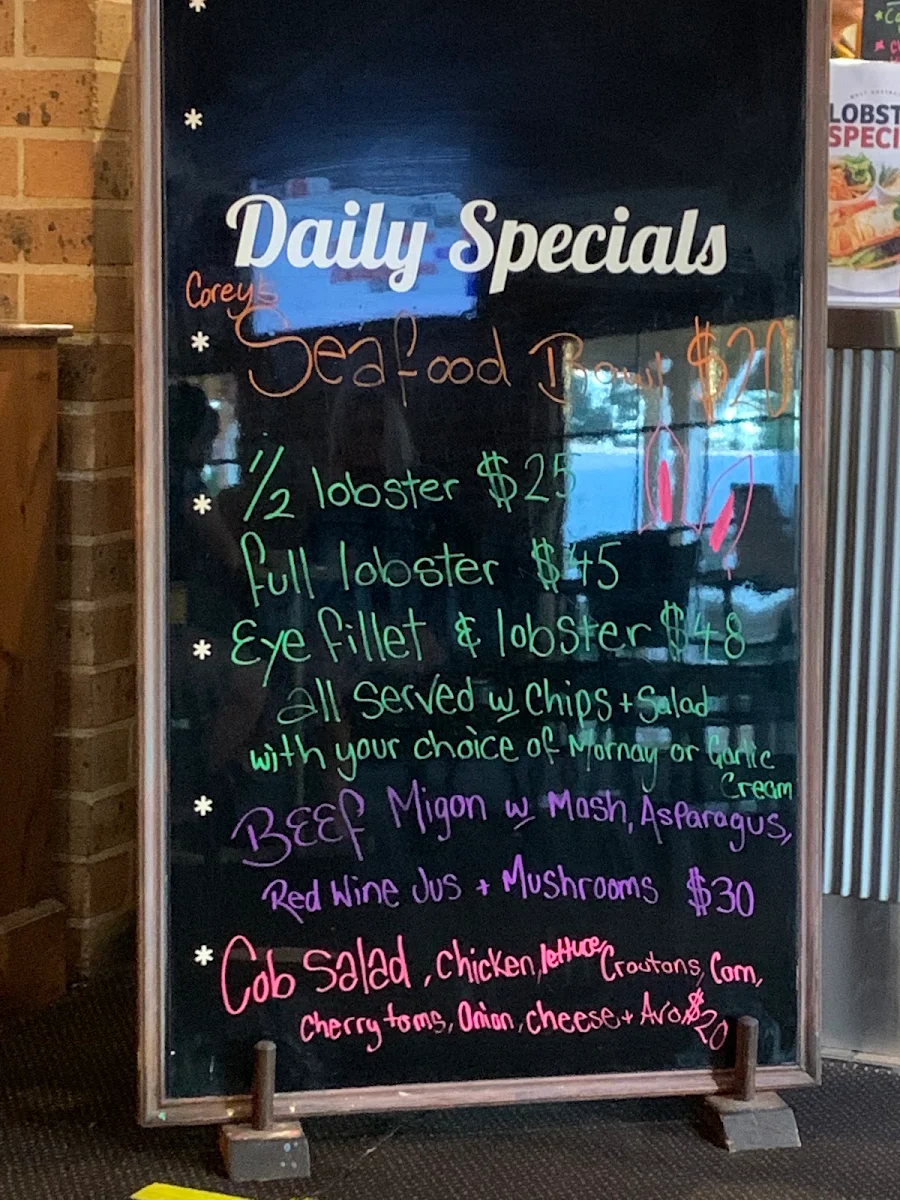 Daily Specials
Corey's
* Seafood Bowl $20
* 1/2 lobster $25
full lobster $45
* Eye fillet & lobster $48
all served w chips + Salad
with your choice of Mornay or Garlic
Cream
* BEEF Migon w Mash, Asparagus,
Red Wine Jus + Mushrooms $30
* Cob Salad, Chicken, lettuce, Croutons, Corn,
Cherry toms, Onion, cheese + Avo $20
LOBST
SPECI